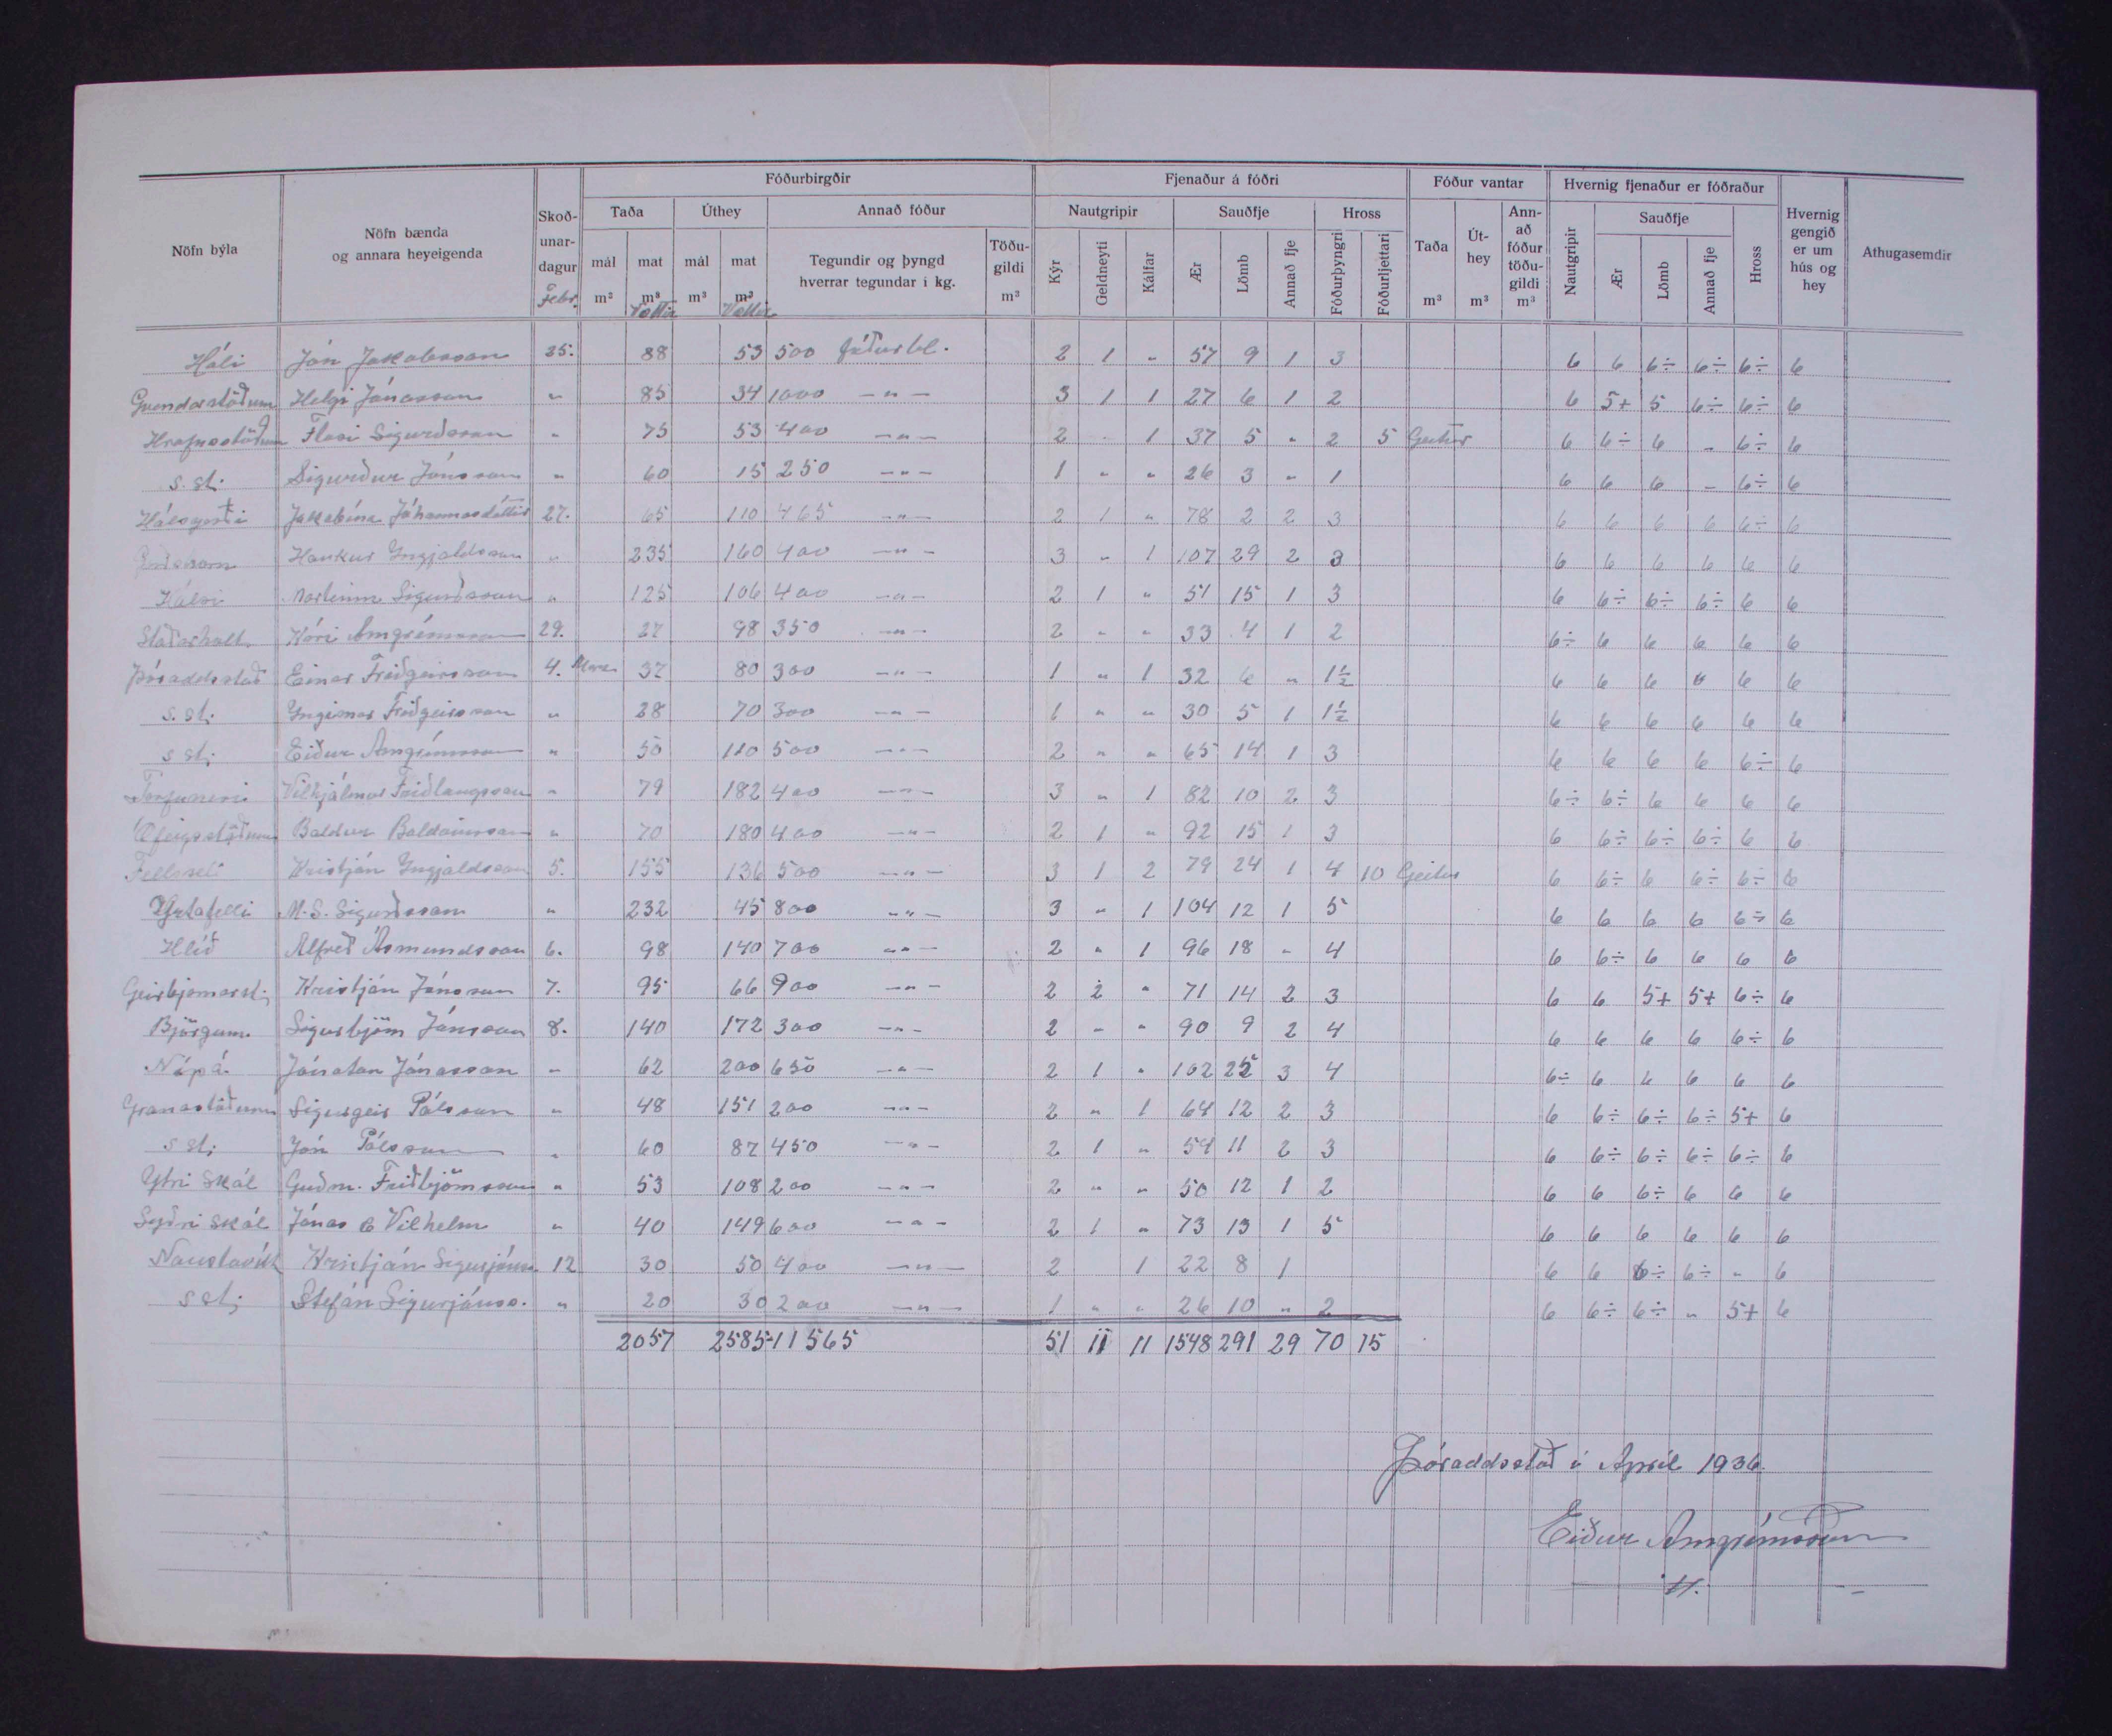 Nöfn býla
Nöfn bænda og annara heyeigenda
Skoð-unar-dagur Febr.
Fóðurbirgðir
Taða
mál m³
mat m³ Vættir
Úthey
mál m³
mat m³ Vættir
Annað fóður
Tegundir og þyngd hverrar tegundar í kg.
Töðu-gildi m³
Fjenaður á fóðri
Nautgripir
Kýr Geldneyti Kálfar
Sauðfje
Ær Lömb Annað fje
Hross
Fóðurþyngri Fóðurljettari
Fóður vantar
Taða m³
Út-hey m³
Ann-að fóður töðu-gildi m³
Hvernig fjenaður er fóðraður
Nautgripir
Sauðfje
Ær Lömb Annað fje
Hross
Hvernig gengið er um hús og hey
Athugasemdir
Háli Jón Jakobsson 25. 88 53 500 fóðurbl. 2 1 „ 57 9 1 3 6 6 6÷ 6÷ 6÷ 6
Gvendarstöðum Helgi Jónasson „ 85 34 1000 —„— 3 1 1 27 6 1 2 6 5+ 5 6÷ 6÷ 6
Hrafnsstöðum Flosi Sigurðsson „ 75 53 400 —„— 2 1 37 5 „ 2 5 Geitur 6 6÷ 6 – 6÷ 6
s. st. Sigurður Jónsson „ 60 15 250 —„— 1 „ „ 26 3 „ 1 6 6 6 – 6÷ 6
Hálsgerði Jakobína Jóhannesdóttir 27. 65 110 465 —„— 2 1 „ 78 2 2 3 6 6 6 6 6÷ 6
Haukur Ingjaldsson „ 235 160 400 —„— 3 „ 1 107 29 2 3 6 6 6 6 6 6
Kálsi Marteinn Sigurðsson „ 125 106 400 —„— 2 1 „ 51 15 1 3 6 6÷ 6÷ 6÷ 6 6
Staðarholt Kári Arngrímsson 29. 27 98 350 —„— 2 „ „ 33 4 1 2 6÷ 6 6 6 6 6
Þóroddstað Einar Friðgeirsson 4. Mars 37 80 300 —„— 1 „ 1 32 6 „ 1½ 6 6 6 „ 6 6
s. st. Ingimar Friðgeirsson „ 28 70 300 —„— 1 „ „ 30 5 1 1½ 6 6 6 6 6 6
s st. Eiður Arngrímsson „ 50 110 500 —„— 2 „ „ 65 14 1 3 6 6 6 6 6÷ 6
Torfunesi Vilhjálmur Friðlaugsson „ 79 182 400 —„— 3 „ 1 82 10 2 3 6÷ 6÷ 6 6 6 6
Ófeigsstöðum Baldur Baldvinsson „ 70 180 400 —„— 2 1 „ 92 15 1 3 6 6÷ 6÷ 6÷ 6 6
Fellsseli Kristján Ingjaldsson 5. 155 136 500 —„— 3 1 2 79 24 1 4 10 Geitur 6 6÷ 6 6÷ 6÷ 6
Yztafelli M. S. Sigurðsson „ 232 45 800 —„— 3 „ 1 104 12 1 5 6 6 6 6 6÷ 6
Hlíð Alfreð Ásmundsson 6. 98 140 700 —„— 2 „ 1 96 18 „ 4 6 6÷ 6 6 6 6
Geirbjarnarst. Kristján Jónsson 7. 95 66 900 —„— 2 2 „ 71 14 2 3 6 6 5+ 5+ 6÷ 6
Björgum Sigurbjörn Jónsson 8. 140 172 300 —„— 2 „ „ 90 9 2 4 6 6 6 6 6÷ 6
Nípá Jónatan Jónasson „ 62 200 650 —„— 2 1 „ 102 25 3 4 6÷ 6 6 6 6 6
Granastöðum Sigurgeir Pálsson „ 48 151 200 —„— 2 „ 1 64 12 2 3 6 6÷ 6÷ 6÷ 5+ 6
s st. Jón Pálsson „ 60 87 450 —„— 2 1 „ 54 11 2 3 6 6÷ 6÷ 6÷ 6÷ 6
Ytri Skál Guðm. Friðbjörnsson „ 53 108 200 —„— 2 „ „ 50 12 1 2 6 6 6÷ 6 6 6
Syðri Skál Jónas & Vilhelm „ 40 149 600 —„— 2 1 „ 73 13 1 5 6 6 6 6 6 6
Naustavík Kristján Sigurjónss. 12 30 50 400 —„— 2 1 22 8 1 6 6 6÷ 6÷ „ 6
s st. Stefán Sigurjónss. „ 20 30 200 —„— 1 „ „ 26 10 „ 2 6 6÷ 6÷ „ 5+ 6
2057 2585 11565 51 11 11 1548 291 29 70 15
Þóroddstað í Apríl 1936.
Eiður Arngrímsson